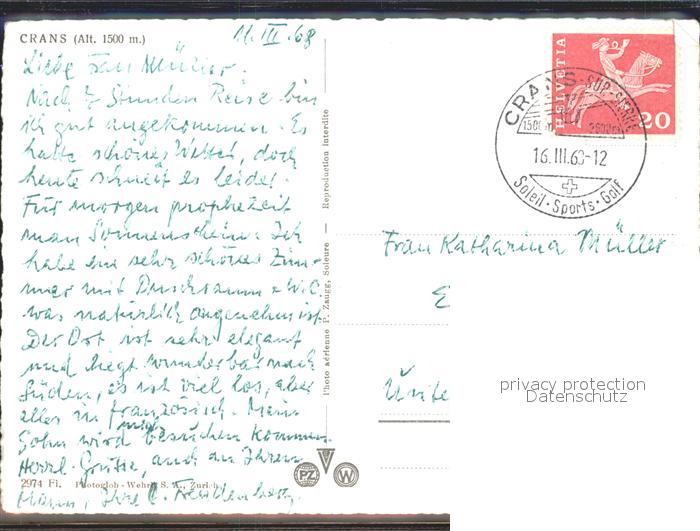 CRANS (Alt. 1500 m.)
11. III. 68
Liebe Frau Müller.
Nach 7 Stunden Reise bin
ich gut angekommen. Es
hatte schönes Wetter, doch
heute schneit es leider.
Für morgen prophezeit
man Sonnenschein. Ich
habe ein sehr schönes Zim-
mer mit Duschraum & W.C.
was natürlich angenehm ist.
Der Ort ist sehr elegant
und liegt wunderbar nach
Süden, es ist viel los, aber
alles in französisch. Mein
Sohn wird mich besuchen kommen.
Herzl. Grüsse, auch an Ihren
Mann, Ihre
2974 Fi. Photoglob-Wehrli S. A., Zurich
Photo aérienne P. Zaugg, Soleure — Reproduction interdite
PZ W
HELVETIA
20
CRANS-SUR-SIERRE
1500m
16.III.68-12
Soleil·Sports·Golf
Frau Katharina Müller
E
Unte
privacy protection
Datenschutz